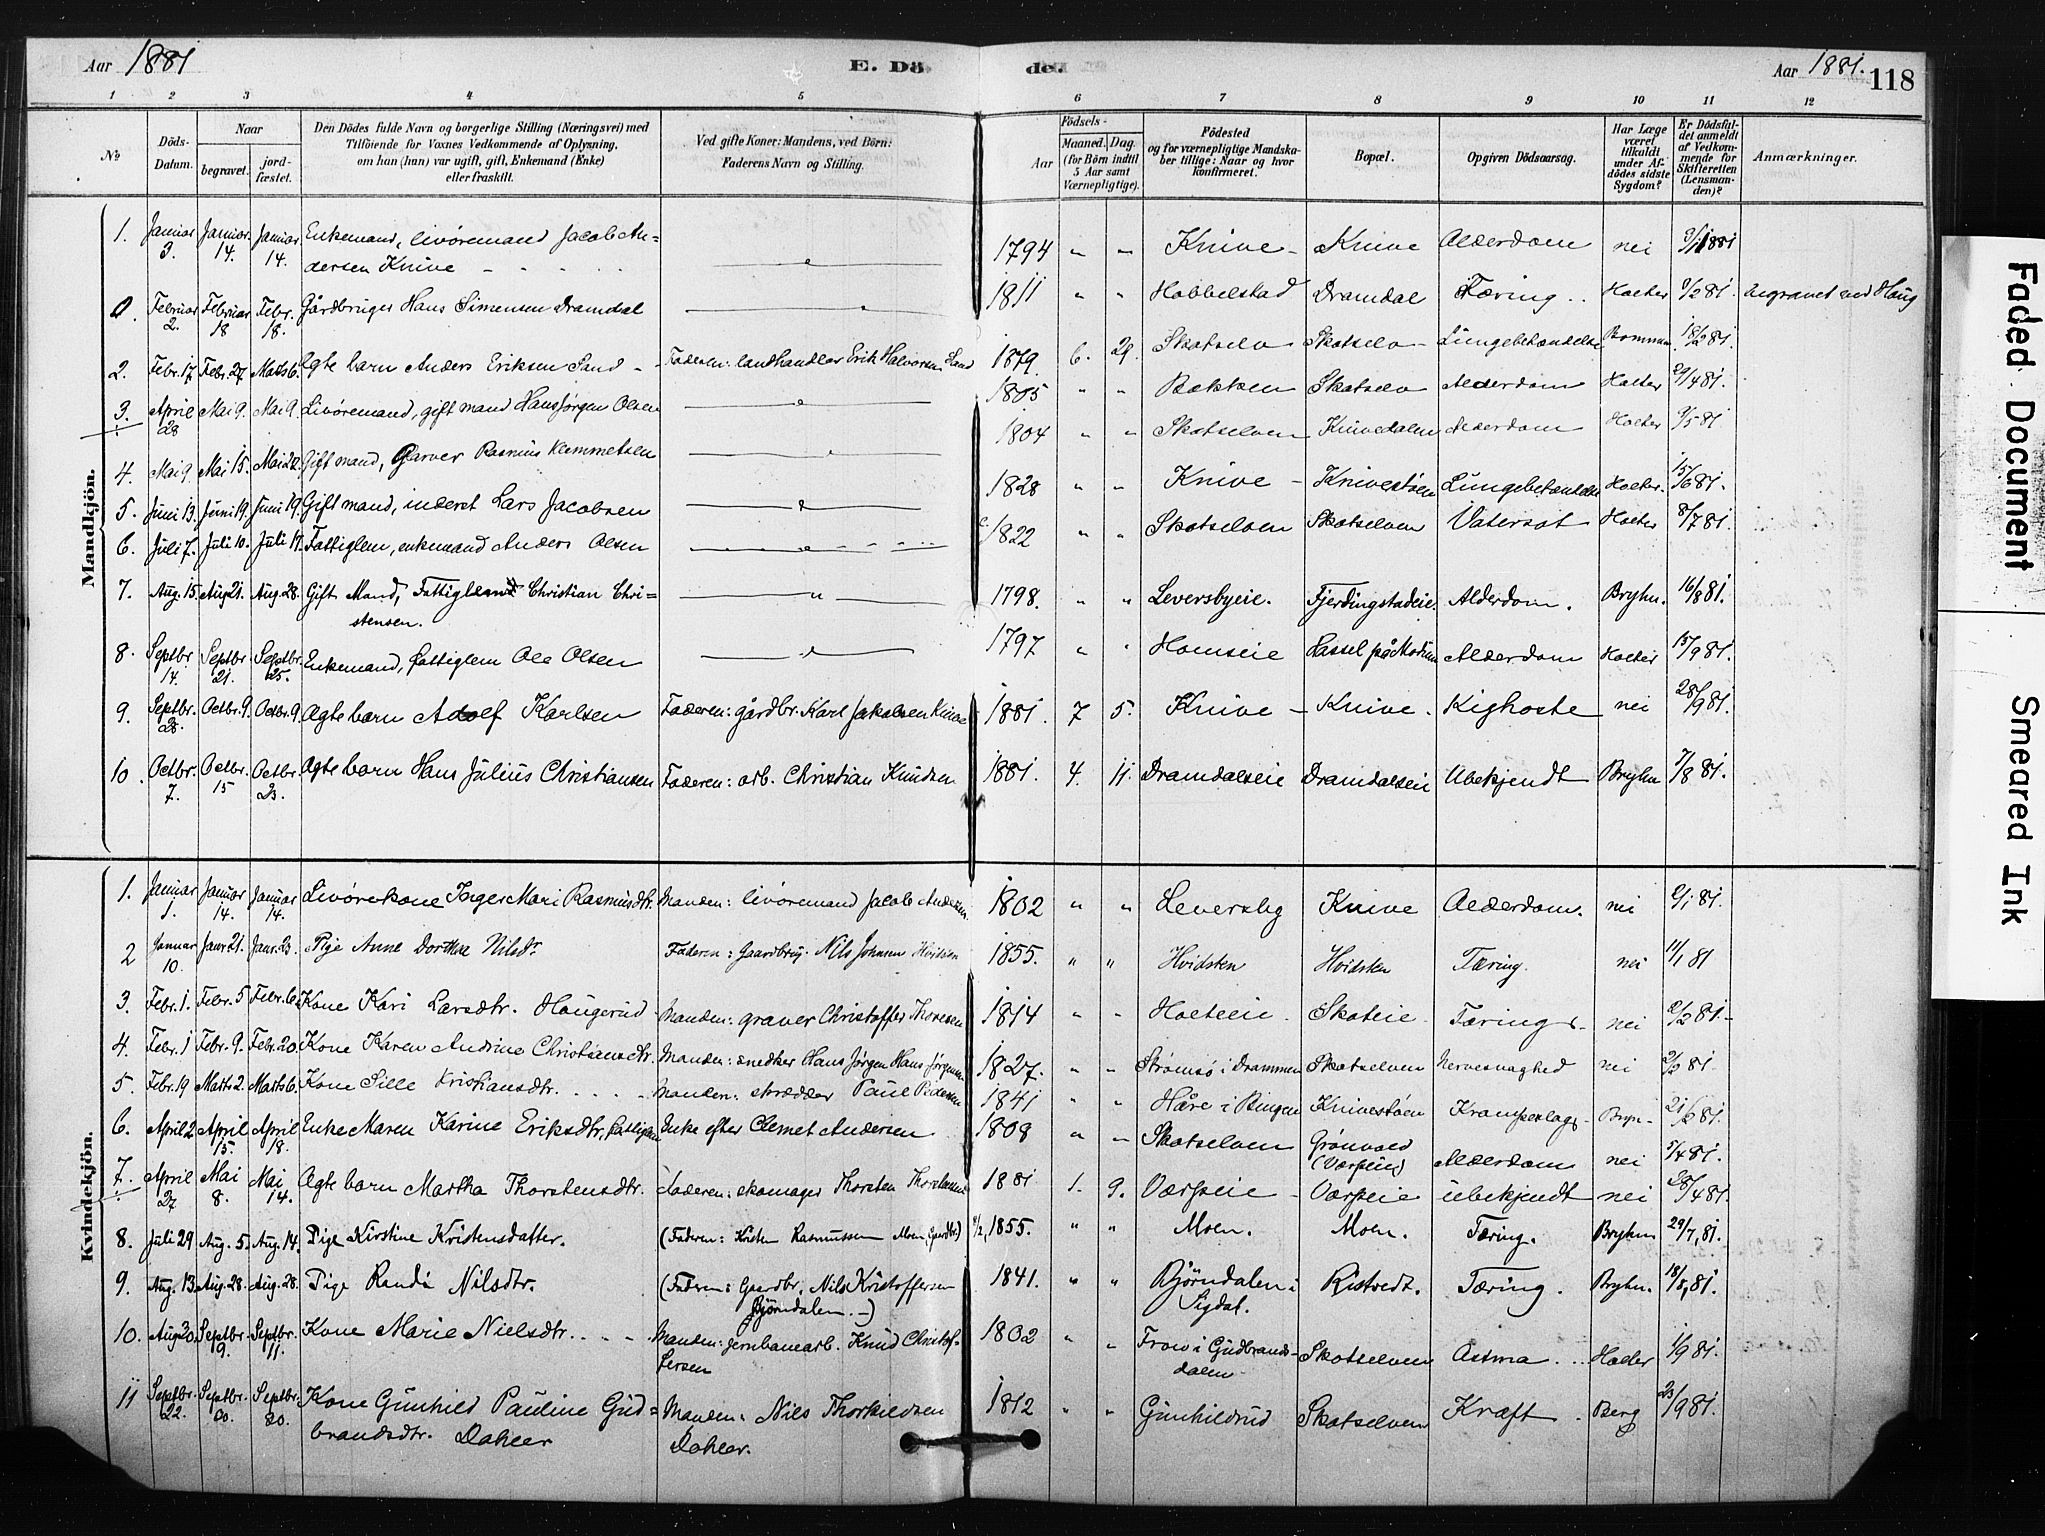 Aar 1881
E. Dö
de.
Aar 1881.
118
1 2 3 4 5 6 7 8 9 10 11 12
№
Döds-Datum.
Naar
begravet.
jord-fæstet.
Den Dödes fulde Navn og borgerlige Stilling (Næringsvei) med
Tilföiende for Voxnes Vedkommende af Oplysning,
om han (hun) var ugift, gift, Enkemand (Enke)
eller fraskilt.
Ved gifte Koner: Mandens, ved Börn:
Faderens Navn og Stilling.
Födsels-
Aar
Maaned. Dag.
(for Börn indtil
5 Aar samt
Værnepligtige).
Födested
og for værnepligtige Mandska-
ber tillige: Naar og hvor
konfirmeret.
Bopæl.
Opgiven Dödsaarsag.
Har Læge
været
tilkaldt
under Af-
dödes sidste
Sygdom?
Er Dödsfal-
det anmeldt
af Vedkom-
mende for
Skifteretten
(Lensman-
den)?
Anmærkninger.
Mandkjön.
1. Januar 3. Januar 14. Januar 14. Enkemand, livøremand Jacob An=
dersen Knive 1794 " " Knive - Knive Alderdom nei 3/1 1881
0. Februar 2. Februar 18 Febr. 18. Gårdbruger Hans Simensen Dramdal 1811 " " Hobbelstad Dramdal Tæring .. Holter 7/2 81. begravet ved Haug
2. Febr. 17 Febr. 27 Marts 6. Ægte barn Anders Eriksen Sand - Faderen: landhandler Erik Halvorsen Sand 1879. 6. 29. Skotselv Skotselv Lungebetændelse 18/2 81.
3. April 28 Mai 9. Mai 9. Livøremand, gift mand Hans Jørgen Olsen 1805 " " Bakken Skotselv Alderdom Holter 29/4 81.
4. Mai 9. Mai 15. Mai 22. Gift mand, Garver Rasmus Klemmetsen 1804 " " Skotselven Knivedalen Alderdom Holter 9/5 81
5. Juni 13. Juni 19. Juni 19. Gift mand, inderst Lars Jacobsen 1828 " " Knive - Knivestøen Lungebetændelse Holter. 15/6 81.
6. Juli 7. Juli 10. Juli 17. Fattiglem, enkemand Anders Olsen 1822 " " Skotselven Skotselven Vatersot Holter 8/7 81.
7. Aug. 15. Aug 21. Aug. 28. Gift Mand, Fattiglem Christian Chri=
stensen. 1798. " " Leversbyeie. Fjerdingstadeie. Alderdom. Bryhn. 16/8 81.
8. Septbr. 14. Septbr 21. Septbr. 25. Enkemand, fattiglem Ole Olsen 1797 " " Homseie Lassel på Modum Alderdom Holter 15/9 81.
9. Septbr. 28. Octbr. 9. Octbr. 9. Ægte barn Adolf Karlsen Faderen: gårdbr. Karl Jakobsen Knive 1881. 7 5. Knive - Knive. Kighoste nei 28/9 81.
10. Octbr. 7. Octbr. 15 Octbr. 23. Ægte barn Hans Julius Christiansen Faderen: arb. Christian Knudsen 1881. 4. 11. Dramdalseie Dramdalseie Ubekjendt Bryhn 7/8 81.
Kvindekjön.
1. Januar 1. Januar 14. Januar 14. Livørekone Inger Mari Rasmusdtr. Manden: livøremand Jacob Andersen 1802 " " Leversby Knive Alderdom. nei 2/1 81.
2 Januar 10. Janr 21. Janr. 23. Pige Anne Dorthea Nilsdr Faderen: Gaardbrug. Nils Johnsen Hvidsten 1855. " " Hvidsten Hvidsten Tæring. nei 11/1 81
3. Febr. 1. Febr. 5 Febr. 6. Kone Kari Larsdtr. Haugerud - Manden: graver Christoffer Thoresen 1814 " " Holteie Skoteie Tæring. nei 2/2 81.-
4. Febr. 1 Febr. 9. Febr. 20. Kone Karen Andrine Christiansdtr. Manden: snedker Hans Jørgen Hans Jørgensen 1827. " " Strømsø i Drammen Skotselven Nervesvaghed nei 2/2 81.
5. Febr. 19 Marts 2. Marts 6. Kone Sille Kristiansdtr. . . . . Manden: skrædder Paul Pedersen 1841 " " Håre i Ringen Knivestøen Krampeslag Bryn - 21/2 81.
6. April 2 April 15. April 18. Enke Maren Karine Eriksdtr, fattiglem Enke efter Clemet Andersen 1808 " " Skotselven Grönvold
(Værpeie) Alderdom nei 5/4 81.
7. April 27 Mai 8. Mai 14. Ægte barn Martha Thorstensdtr. Faderen: skomager Thorsten Thorstensen 1881 1. 9. Værpeie - Værpeie ubekjendt nei 28/4 81.
8. Juli 29 Aug. 5. Aug. 14. Pige Kirstine Kristensdatter. (Faderen: Kristen Rasmussen Moen Gaardbr.) 1855. " " Moen. Moen. Tæring. Bryhn 29/7, 81.
9. Aug. 13 Aug. 28. Aug. 28. Pige Randi Nilsdtr. (Faderen: Gaardbr. Nils Kristoffersen
Bjørndalen.-) 1841. " " Bjørndalen i
Sigdal. Ristvedt. Tæring. Bryhn. 18/8, 81.
10. Aug 30. Septbr. 9. Septbr. 11. Kone Marie Nielsdtr. . . . . Manden: jernbanearb. Knud Christof-
fersen 1802 " " Fron i Gudbrands-
dalen Skotselven Astma . . . Holter 1/9 81.
11 Septbr. 22. Septbr. 30. Septbr. 30. Kone Gunhild Pauline Gud=
brandsdtr. Dahler Manden: Nils Thorkildsen
Dahler. 1812 " " Gunhildrud Skotselven Kræft . Berg 23/9 81.
Faded Document
Smeared Ink